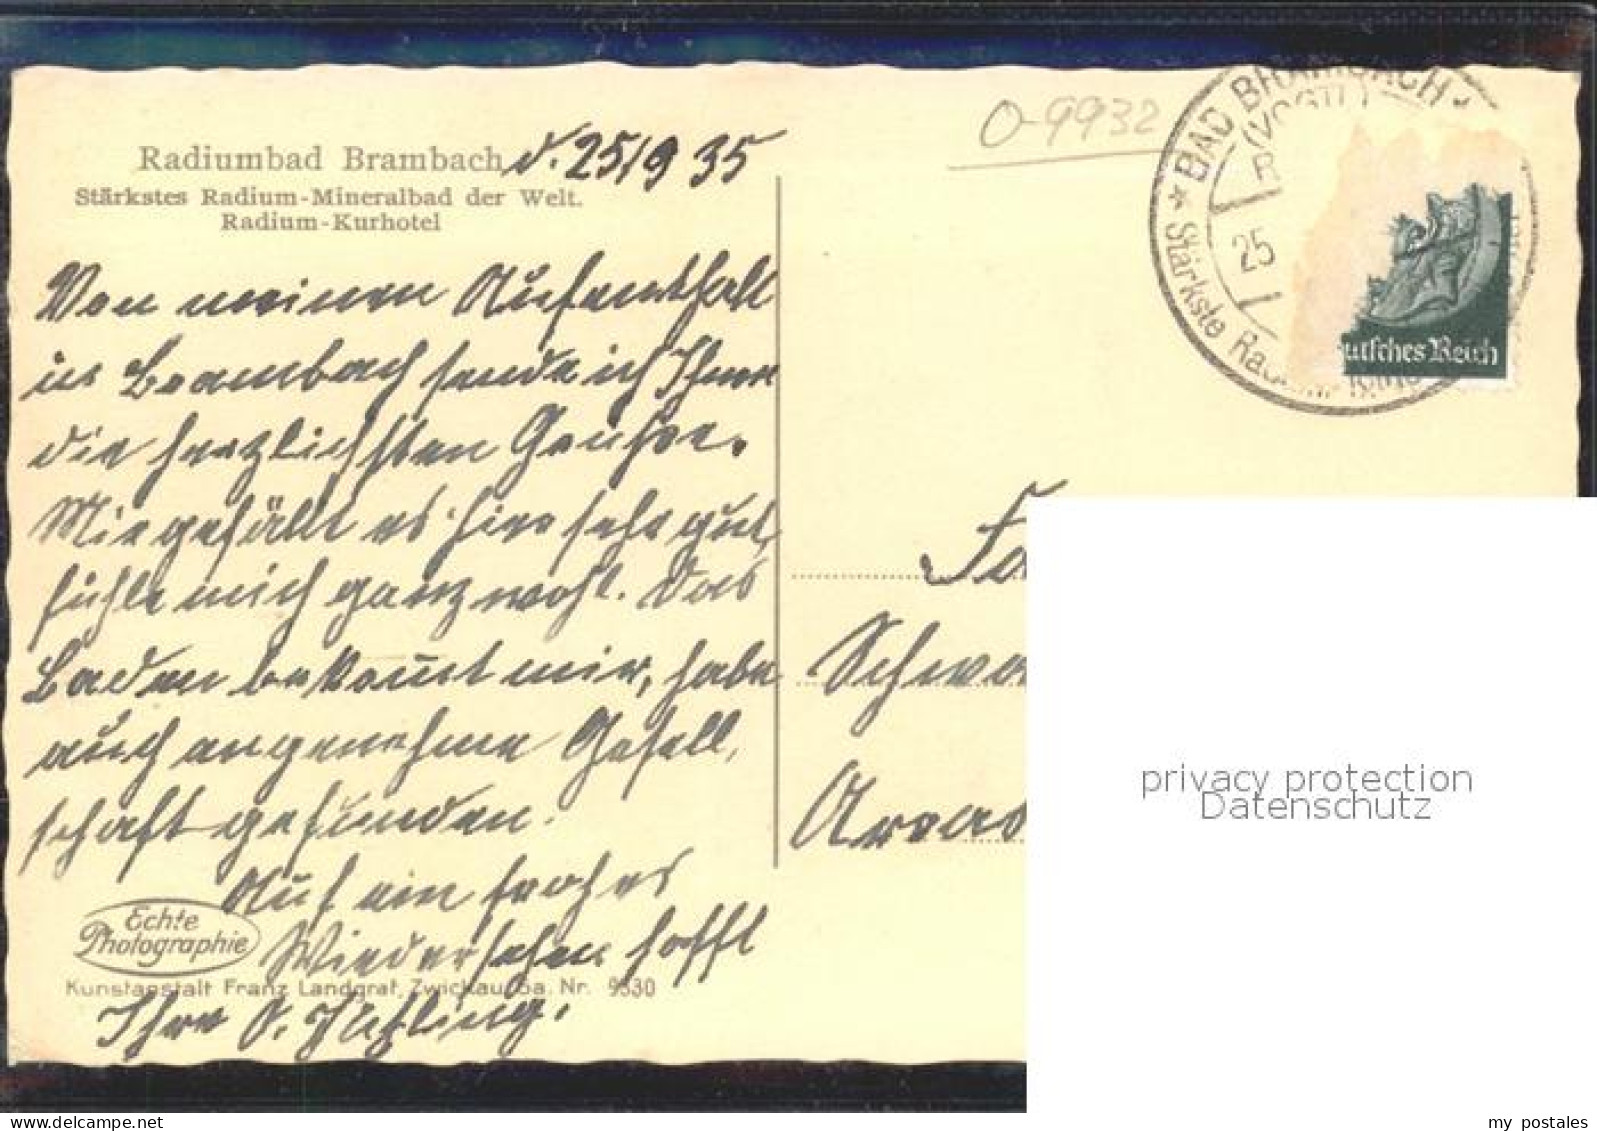 Radiumbad Brambach d. 25/9 35
Stärkstes Radium-Mineralbad der Welt.
Radium-Kurhotel
Von meinen Aufenthalt
in Brambach sende ich Ihnen
die herzlichsten Grüße.
Mir gefällt es hier sehr gut,
fühle mich ganz wohl. Das
Baden bekommt mir, habe
auch angenehme Gesell,
schaft gefunden.
Auf ein frohes
Wiedersehen hofft
Ihre O.
Echte
Photographie
Kunstanstalt Franz Landgraf, Zwickau Sa. Nr. 9330
O-9932
* BAD BRAMBACH *
(VOGTL)
25
Stärkste
utsches Reich
Schwa
privacy protection
Datenschutz
my postales